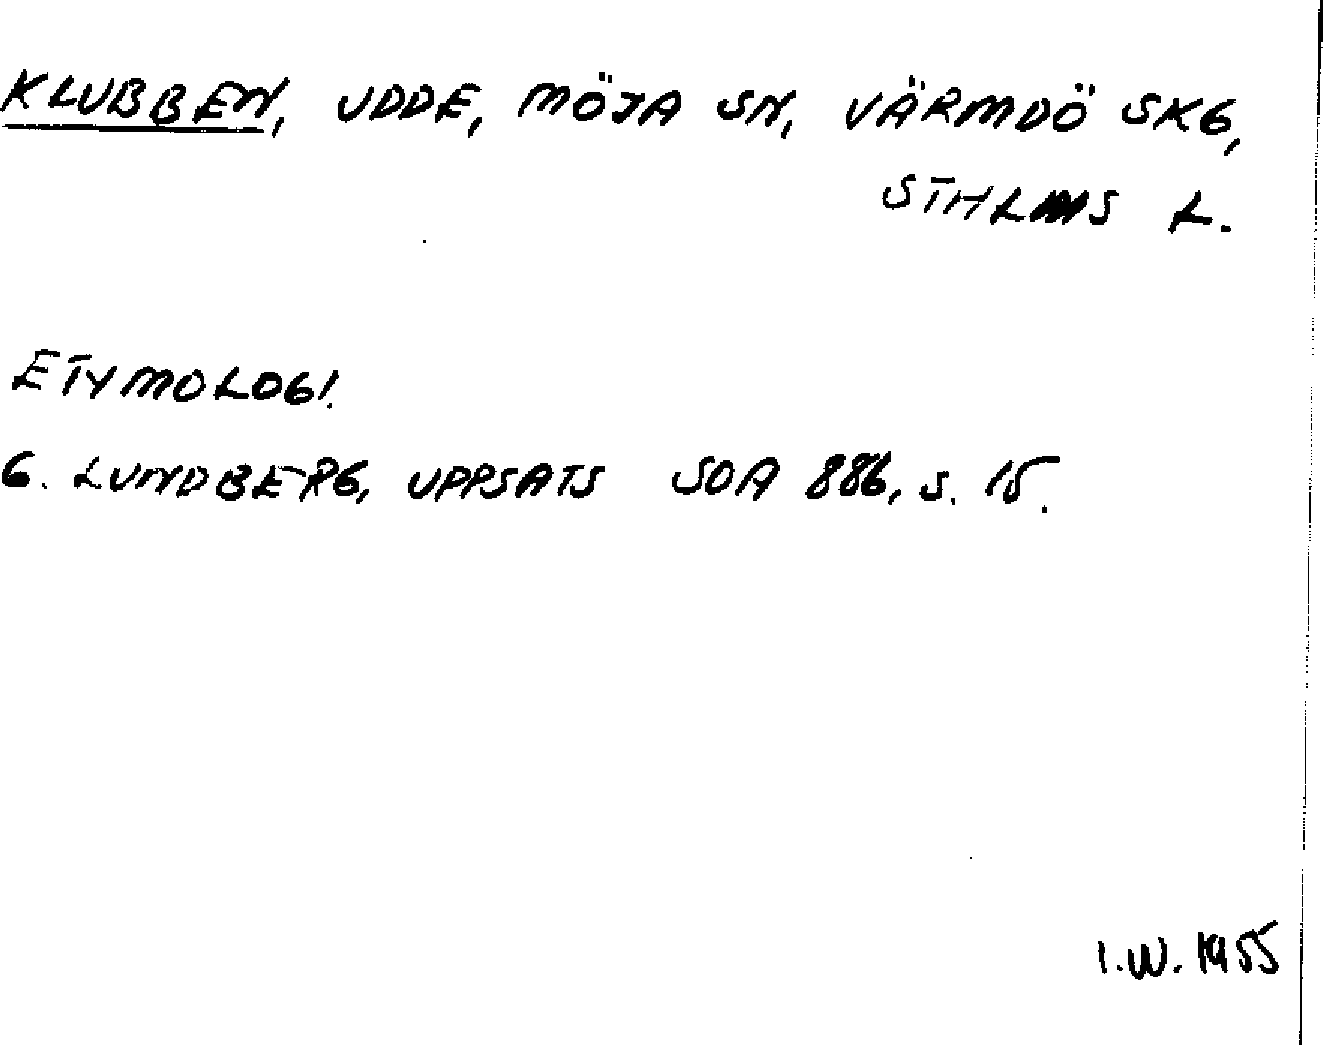 KLUBBEN, UDDE, MÖJA SN, VÄRMDÖ SKG,
STHLMS L.
ETYMOLOGI.
G. LUNDBERG, UPPSATS SOA 886, S. 15.
I.W. 1955